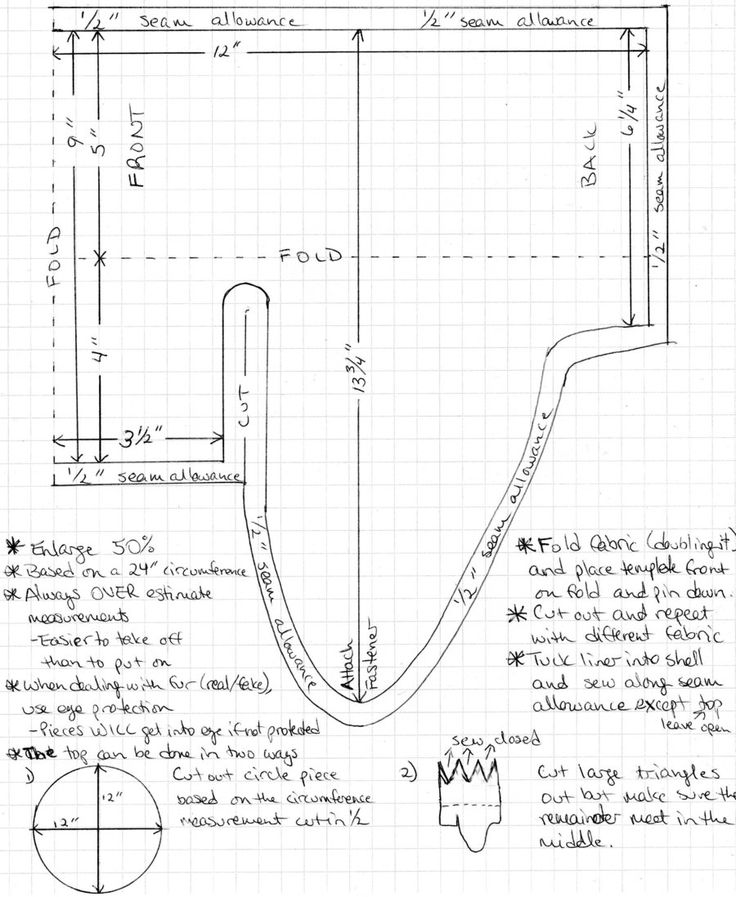 1/2" seam allowance
1/2" seam allowance
12"
9"
5"
FRONT
BACK
6 1/4"
1/2" seam allowance
FOLD
FOLD
4"
CUT
13 3/4"
3 1/2"
1/2" seam allowance
1/2" seam allowance
1/2" seam allowance
Attach
Fastener
* Enlarge 50%
* Based on a 24" circumference
* Always OVER estimate
measurements
-Easier to take off
than to put on
* When dealing with fur (real/fake),
use eye protection
-Pieces WILL get into eye if not protected
* The top can be done in two ways
1)
12"
12"
Cut out circle piece
based on the circumference
measurement cut in 1/2
* Fold fabric (doubling it)
and place template front
on fold and pin down.
* Cut out and repeat
with different fabric
* Tuck liner into shell
and sew along seam
allowance except top
leave open
2)
sew closed
Cut large triangles
out but make sure the
remainder meet in the
middle.